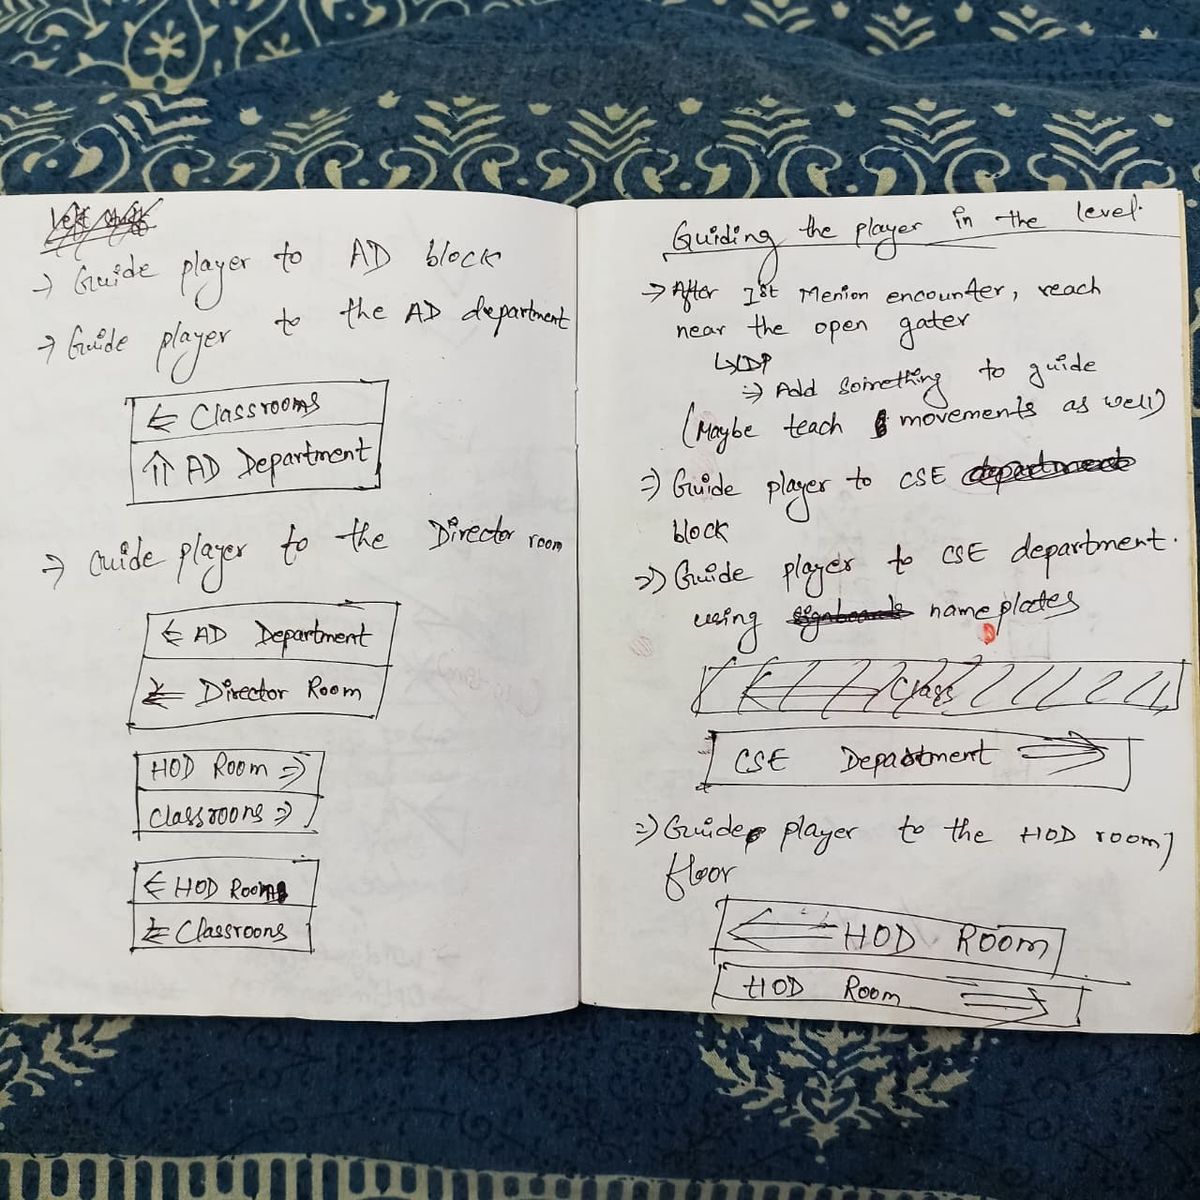 Guiding the player in the level.
→ After 1st Menion encounter, reach
near the open gater
↳ LDP
⇒ Add something to guide
(Maybe teach movements as well)
⇒ Guide player to CSE department
block
⇒ Guide player to CSE department.
using signboards name plates
← Class
CSE Department ⇒
⇒ Guide player to the HOD room/
floor
⇐ HOD Room
HOD Room ⇒
→ Guide player to AD block
→ Guide player to the AD department
← Classrooms
⇑ AD Department
→ Guide player to the Director room
← AD Department
⇐ Director Room
HOD Room ⇒
Classroons ⇒
← HOD Room
← Classroons